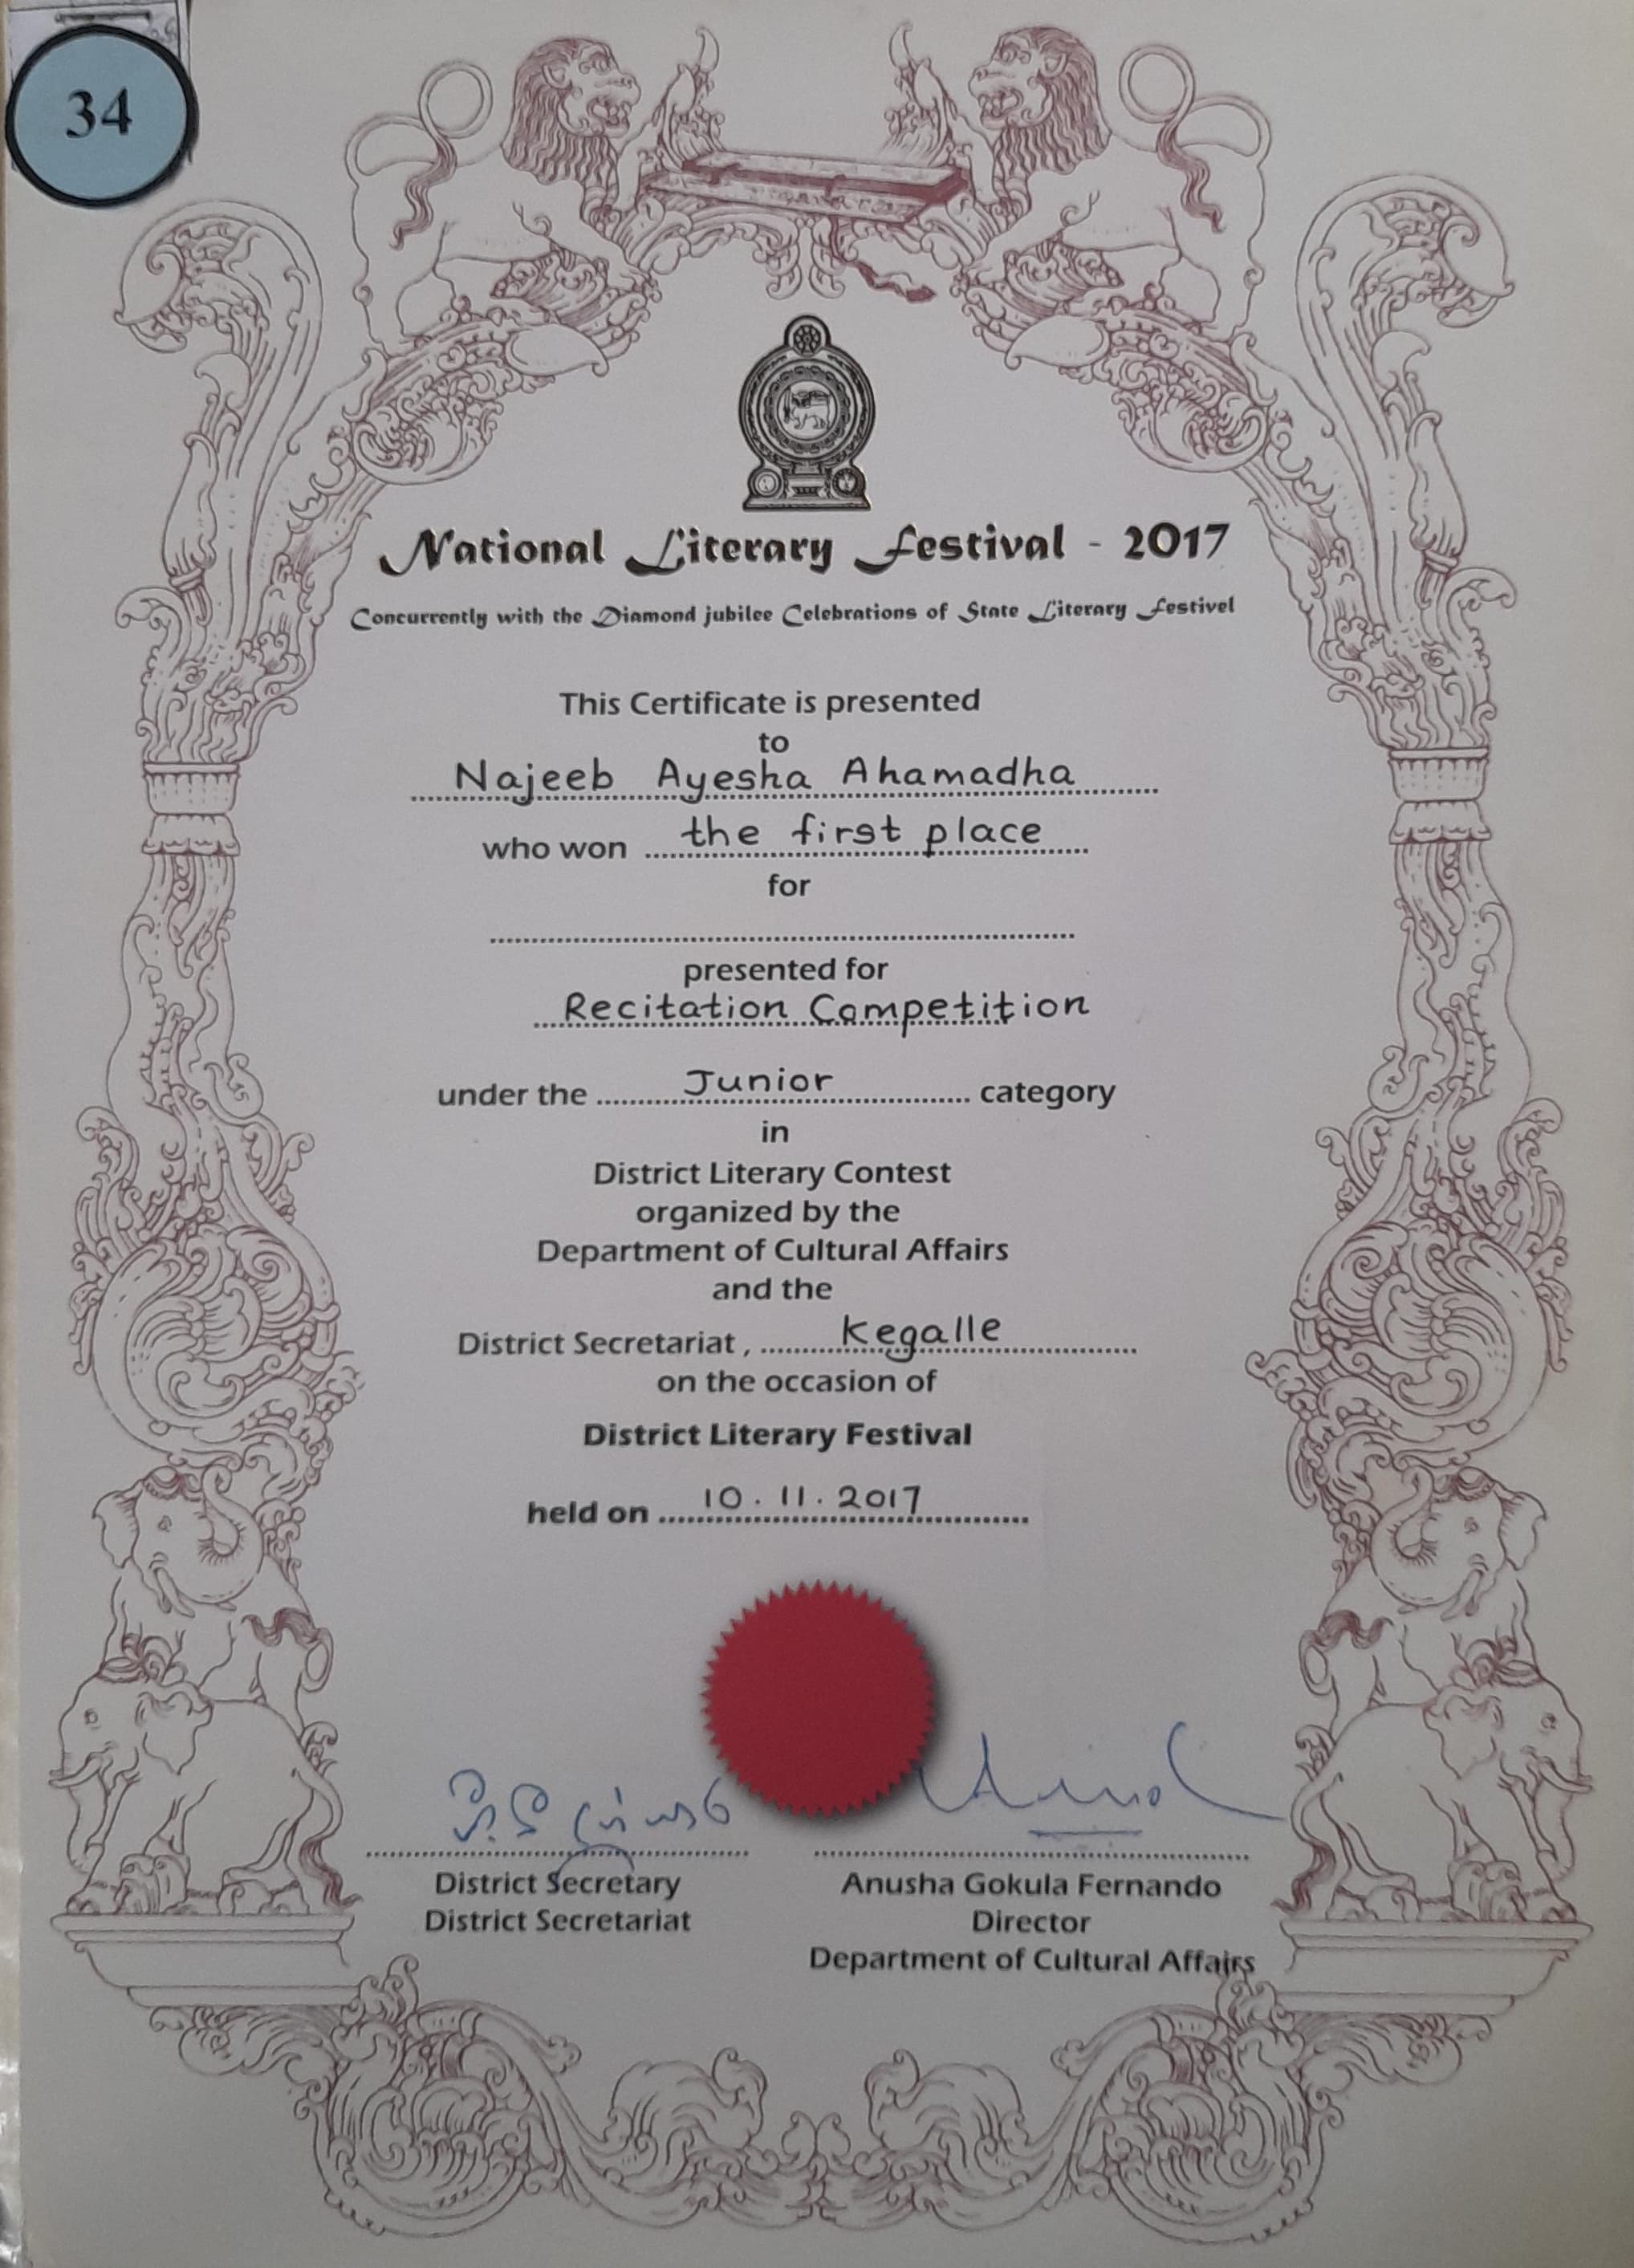 34
National Literary Festival - 2017
Concurrently with the Diamond jubilee Celebrations of State Literary Festivel
This Certificate is presented
to
Najeeb Ayesha Ahamadha
who won the first place
for
presented for
Recitation Competition
under the Junior category
in
District Literary Contest
organized by the
Department of Cultural Affairs
and the
District Secretariat , Kegalle
on the occasion of
District Literary Festival
held on 10.11.2017
District Secretary
District Secretariat
Anusha Gokula Fernando
Director
Department of Cultural Affairs